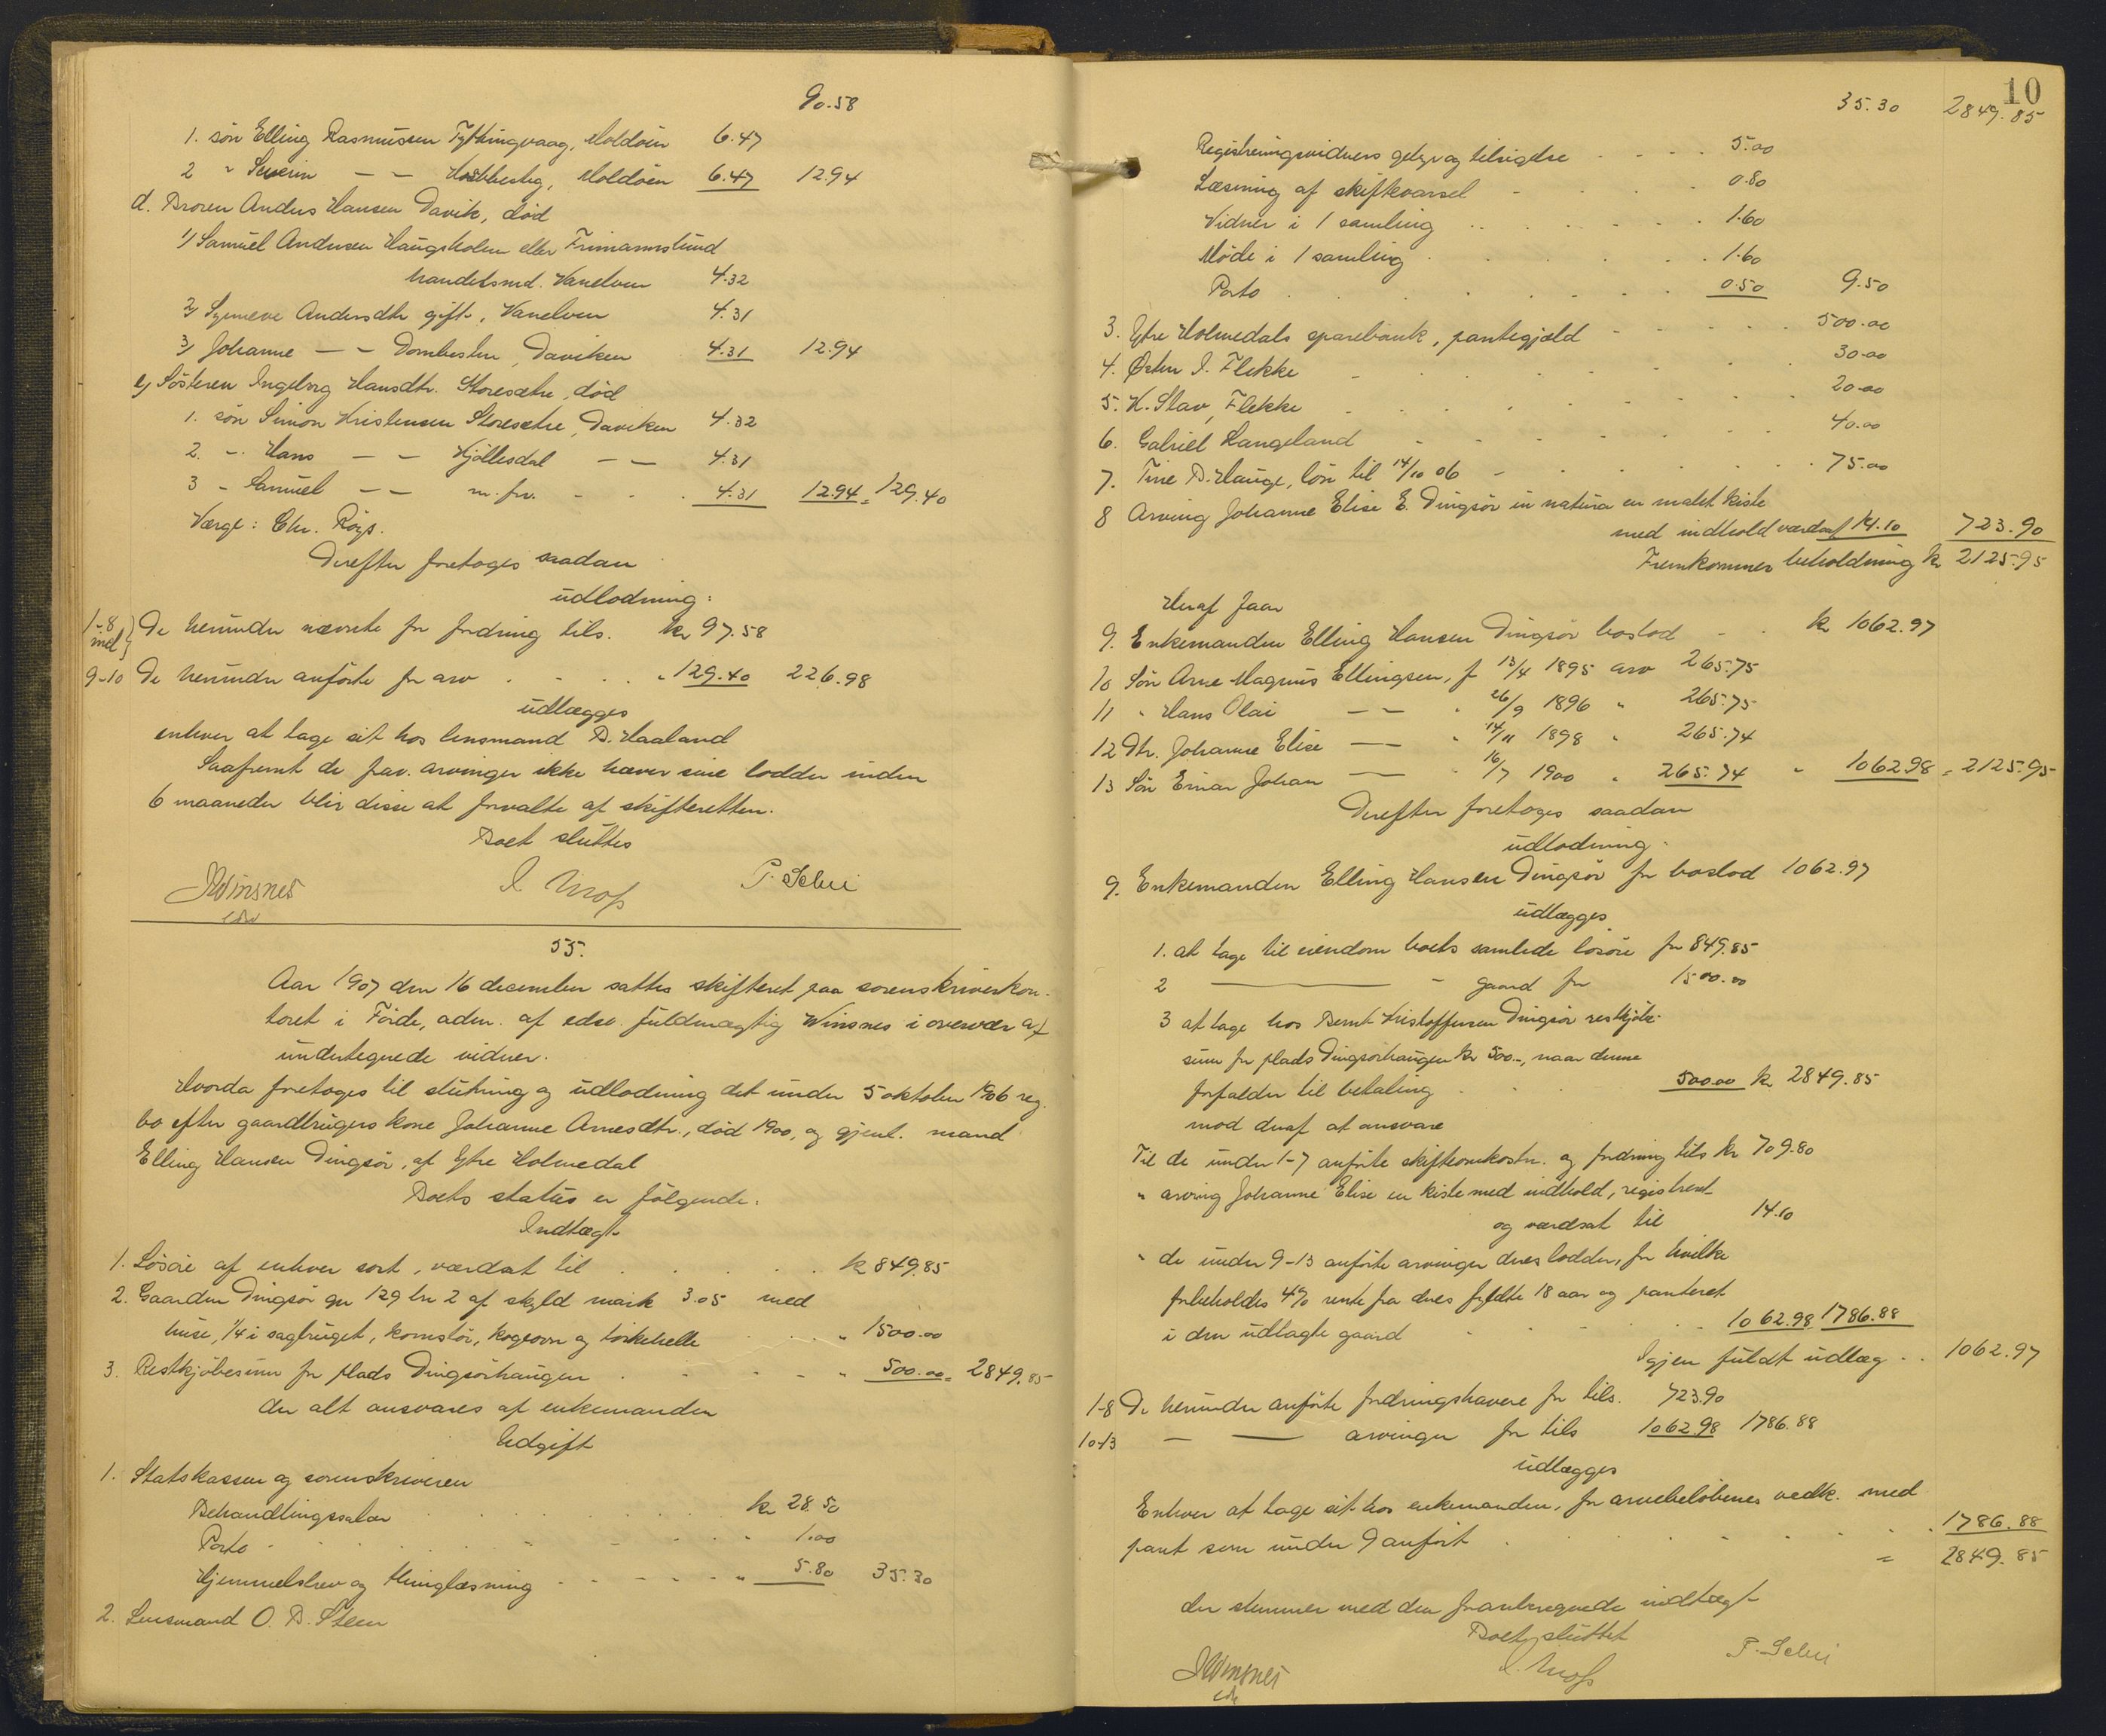 90.58
1. søn Elling Rasmussen Tythingvaag, Moldöen 6.47
2 " Severin — — Moldöen 6.47 12.94
d. Broren Anders Hansen Davik, död
1) Samuel Andersen Haugsholm eller Frimannslund
handelsmd. Vanelven 4.32
2) Synneve Andersdtr gift, Vanelven 4.31
3) Johanne — — Dombesten, Daviken 4.31 12.94
e) Søsteren Ingeborg Hansdtr. Storesætre, död
1. søn Simon Kristensen Storesætre, Daviken 4.32
2. -. Hans — — Hjöllesdal — — 4.31
3 - Samuel — — m. frv. - . . 4.31 12.94 = 129.40
Værge: Chr. Röys.
Derefter foretoges saadan
udlodning:
1-8 incl } De herunder nævnte for fordring tils. kr 97.58
9-10 De herunder anförte for arv . . . . " 129.40 226.98
udlægges
enhver at tage sit hos lensmand B. Haaland
Saafremt de frav. arvinger ikke hæver sine lodder inden
6 maaneder blir disse at forvalte af skifteretten.
Boet sluttes
JWinsnes I. Moss P. Schei
edsv
55.
Aar 1907 den 16 december sattes skifteret paa sorenskriverkon-
toret i Förde, adm. af edsv. fuldmægtig Winsnes i overvær af
undertegnede vidner.
Hvorda foretoges til slutning og udlodning det under 5 oktober 1906 reg.
bo efter gaardbrugers kone Johanne Arnesdtr., död 1900, og gjenl. mand
Elling Hansen Dingsör, af Ytre Holmedal
Boets status er fölgende:
Indtægt
1. Lösöre af enhver sort, værdsat til . . . . . kr 849.85
2. Gaarden Dingsör gn 129 bn 2 af skyld mark 3.05 med
huse, 1/4 i sagbruget, kornstör, kogeovn og törkehelle . . . " 1500.00
3. Restkjöbesum for plads Dingsörhaugen . . - - - " 500.00 = 2849.85
der alt ansvares af enkemanden
Udgift
1. Statskassen og sorenskriveren
Behandlingssalær . . . . . . . kr 28.50
Porto - . . . . - - - - " 1.00
Hjemmelsbrev og thinglæsning - - - - - " 5.80 35.30
2. Lensmand O. B. Steen
10
35.30 2849.85
Registreringsvidners gebyr og tilsigelse . . . . 5.00
Læsning af skiftevarsel - . . . 0.80
Vidner i 1 samling . . . . . . . 1.60
Möde i 1 samling . . . . . . 1.60
Porto . . . . . . . 0.50 9.50
3. Ytre Holmedals sparebank, pantegjæld - . . . . 500.00
4. Østen I. Flekke - . . . . . . 30.00
5. K. Stav, Flekke . . . . . . . 20.00
6. Gabriel Hangeland - . . . . . . 40.00
7. Tine B. Hauge, lön til 14/10 06 - . . . . . 75.00
8 Arving Johanne Elise E. Dingsör in natura en malet kiste
med indhold værdsat 14.10 723.90
Fremkommer beholdning kr 2125.95
Heraf faar
9. Enkemanden Elling Hansen Dingsör boslod - . kr 1062.97
10 Sön Arne Magnus Ellingsen, f 13/4 1895 arv 265.75
11 " Hans Olai — — " 26/9 1896 " 265.75
12 Dtr. Johanne Elise — — " 14/11 1898 " 265.74
13 Sön Einar Johan — — " 16/7 1900 " 265.74 " 1062.98 = 2125.95
Derefter foretoges saadan
udlodning.
9. Enkemanden Elling Hansen Dingsör for boslod 1062.97
udlægges
1. at tage til eiendom boets samlede lösöre for 849.85
2 ——— " gaard for 1500.00
3 at tage hos Bernt Kristoffersen Dingsör restkjöbe-
sum for plads Dingsörhaugen kr 500.-, naar denne
forfalder til betaling . . . . 500.00 kr 2849.85
mod deraf at ansvare
Til de under 1-7 anförte skifteomkostn. og fordring tils kr 709.80
" arving Johanne Elise en kiste med indhold, registreret
og værdsat til 14.10
" de under 9-13 anförte arvinger deres lodder, for hvilke
forbeholdes 4% rente fra deres fyldte 18 aar og panteret
i den udlagte gaard - . . . . . 1062.98 1786.88
Igjen fuldt udlæg . . 1062.97
1-8 De herunder anförte fordringshavere for tils. 723.90
10-13 — — arvinger for tils 1062.98 1786.88
udlægges
Enhver at tage sit hos enkemanden, for arvebelöbenes vedk. med
pant som under 9 anfört . . . . . . . 1786.88
= 2849.85
der stemmer med den foranberegnede indtægt
Boet sluttet
JWinsnes I. Moss P. Schei
edsv